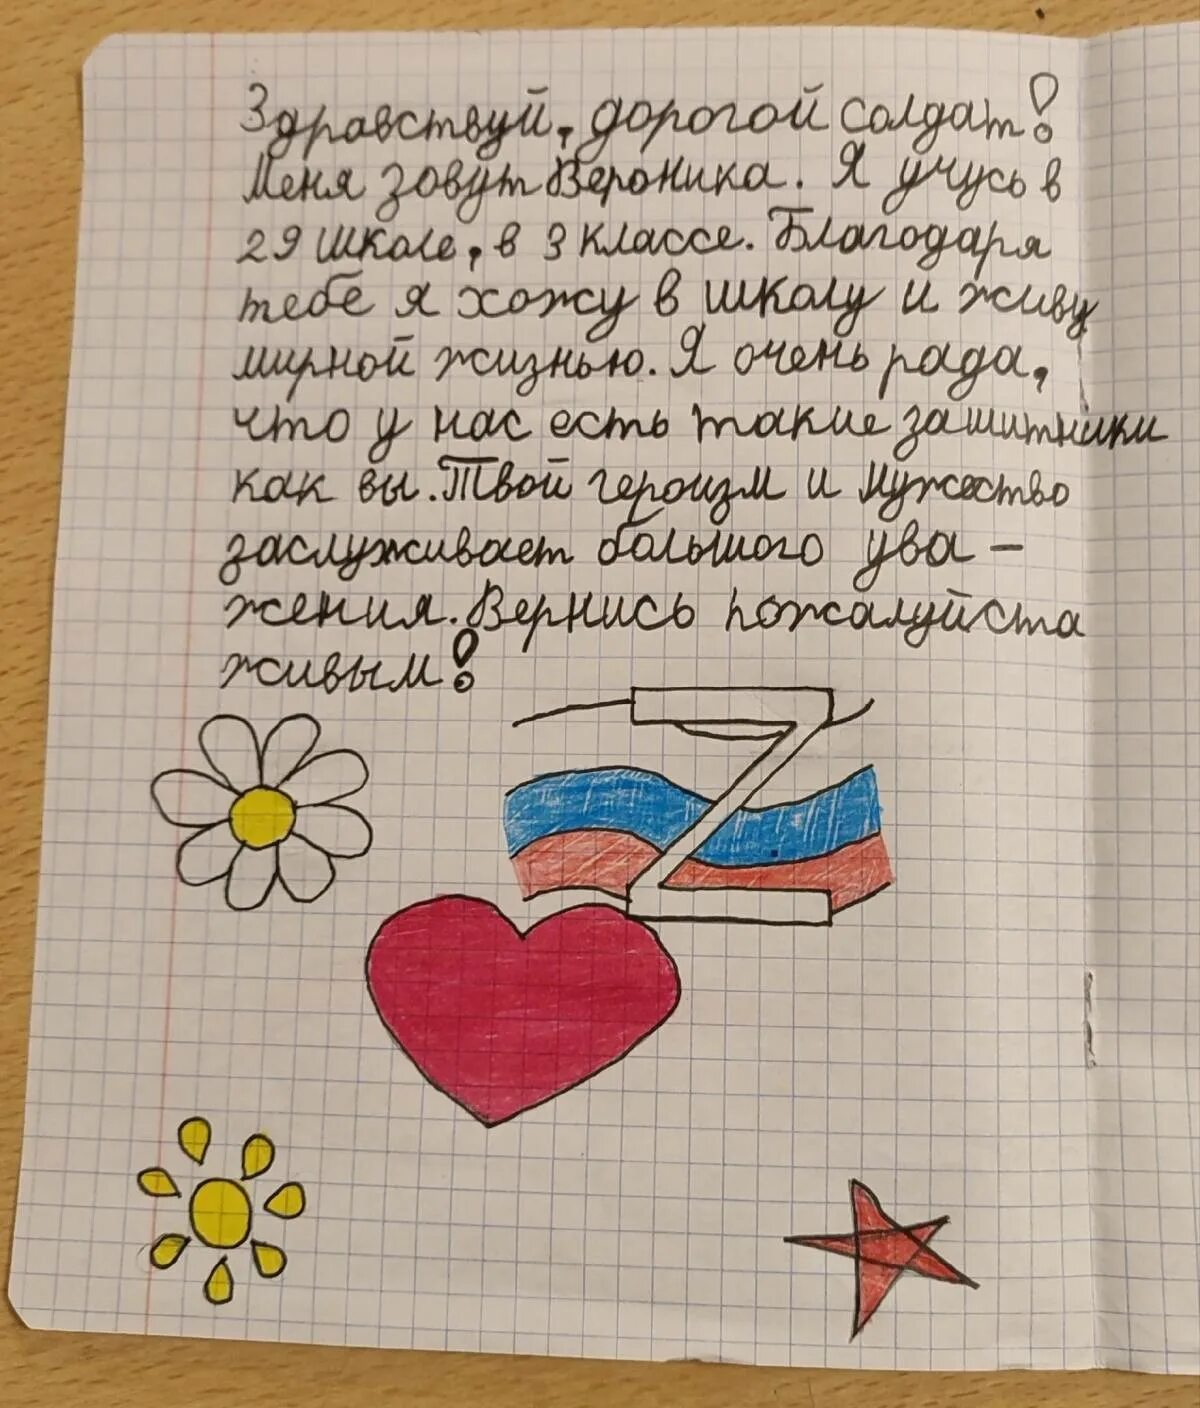 Здравствуй, дорогой солдат!
Меня зовут Вероника. Я учусь в
29 школе, в 3 классе. Благодаря
тебе я хожу в школу и живу
мирной жизнью. Я очень рада,
что у нас есть такие зашитники
как вы. Твой героизм и мужество
заслуживает большого ува-
жения. Вернись пожалуйста
живым!
Z